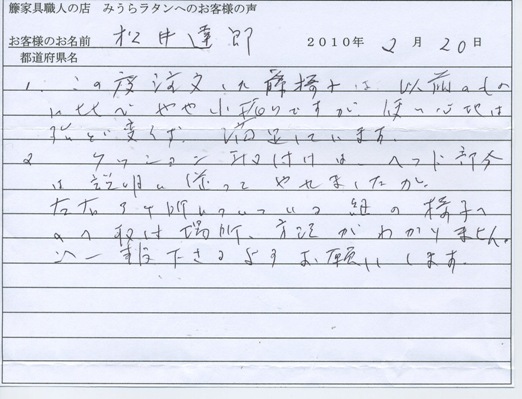 籐家具職人の店 みうらラタンへのお客様の声
お客様のお名前 松井達郎 2010年 2月 20日
都道府県名
1. この度注文した藤椅子は以前のもの
に比べやや小振りですが、使い心地は
殆ど変らず、満足しています
2 クッション取付けは、ヘッド部分
は説明に添ってやれましたが、
左右 ヶ所についている紐の椅子へ
のへ取付場所、方法がわかりません。
ご一報下さるようお願いします。